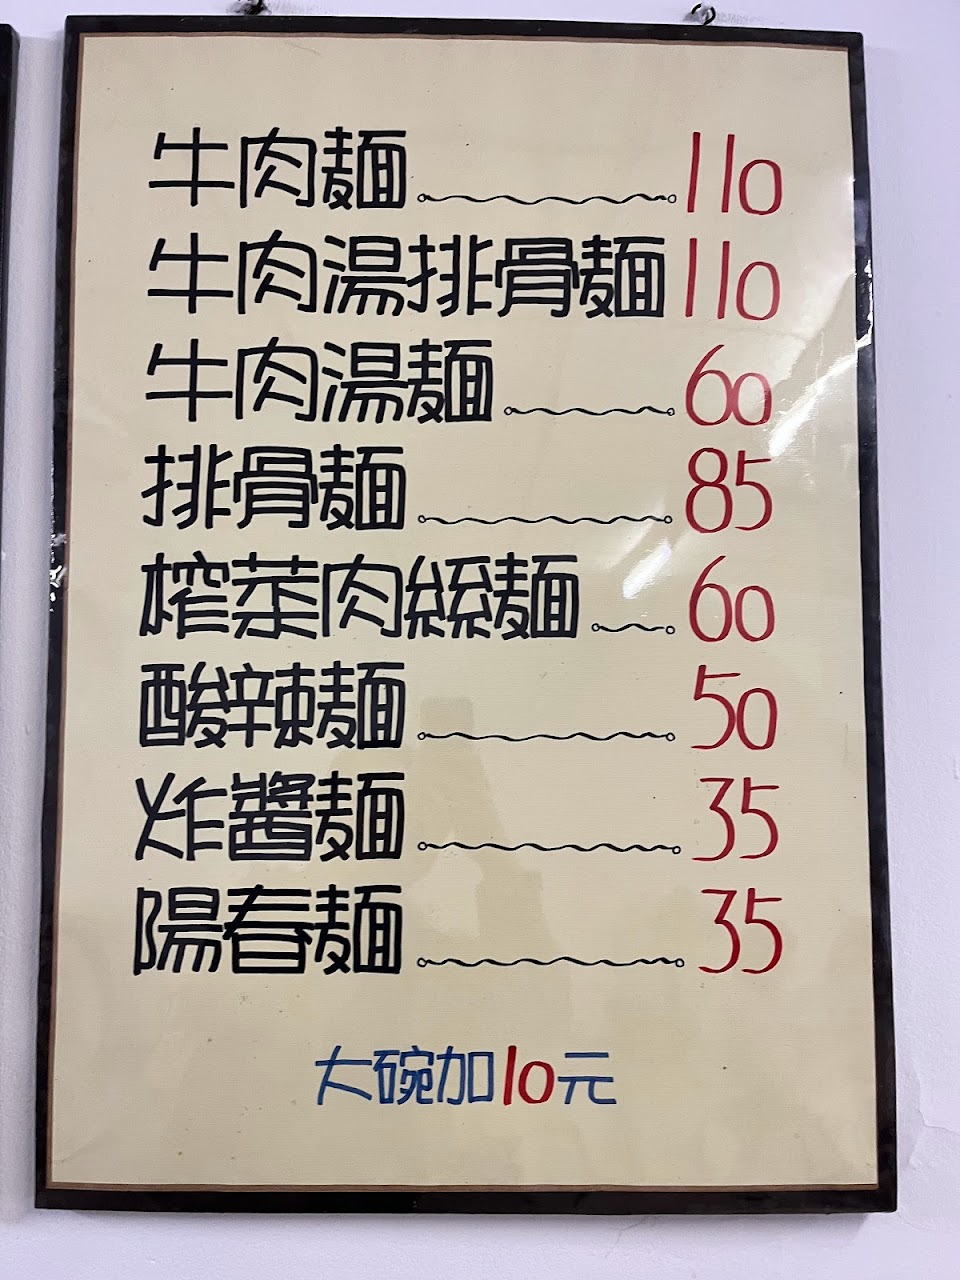 牛肉麵 110
牛肉湯排骨麵 110
牛肉湯麵 60
排骨麵 85
榨菜肉絲麵 60
酸辣麵 50
炸醬麵 35
陽春麵 35
大碗加10元